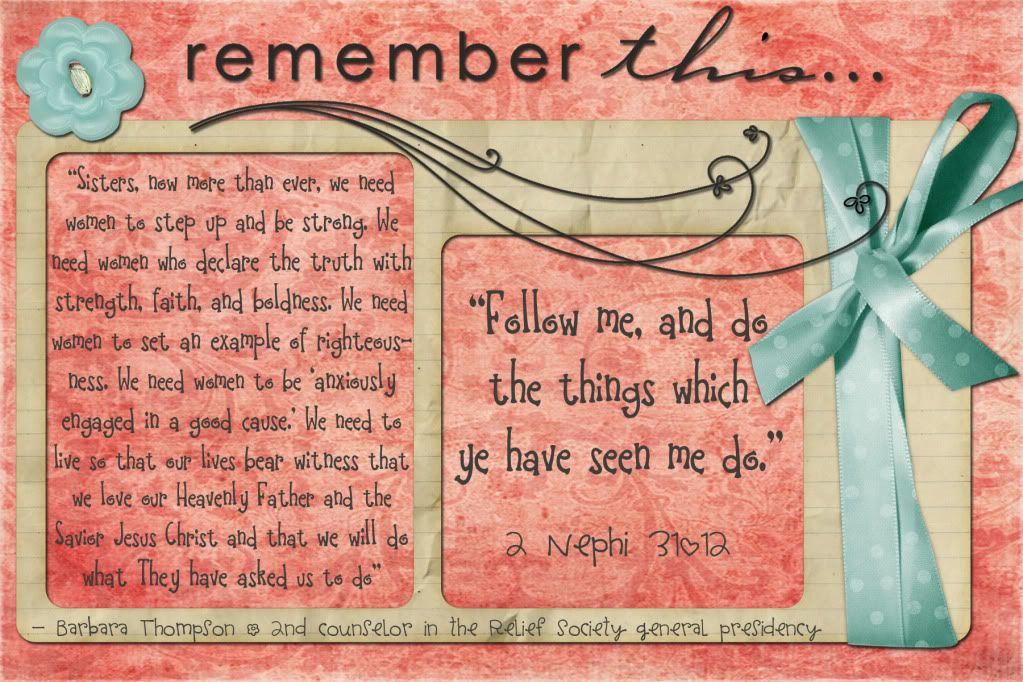 remember this...
“Sisters, now more than ever, we need
women to step up and be strong. We
need women who declare the truth with
strength, faith, and boldness. We need
women to set an example of righteous-
ness. We need women to be ‘anxiously
engaged in a good cause.’ We need to
live so that our lives bear witness that
we love our Heavenly Father and the
Savior Jesus Christ and that we will do
what They have asked us to do”
“Follow me, and do
the things which
ye have seen me do.”
2 Nephi 31♡12
- Barbara Thompson ❁ 2nd counselor in the Relief Society general presidency